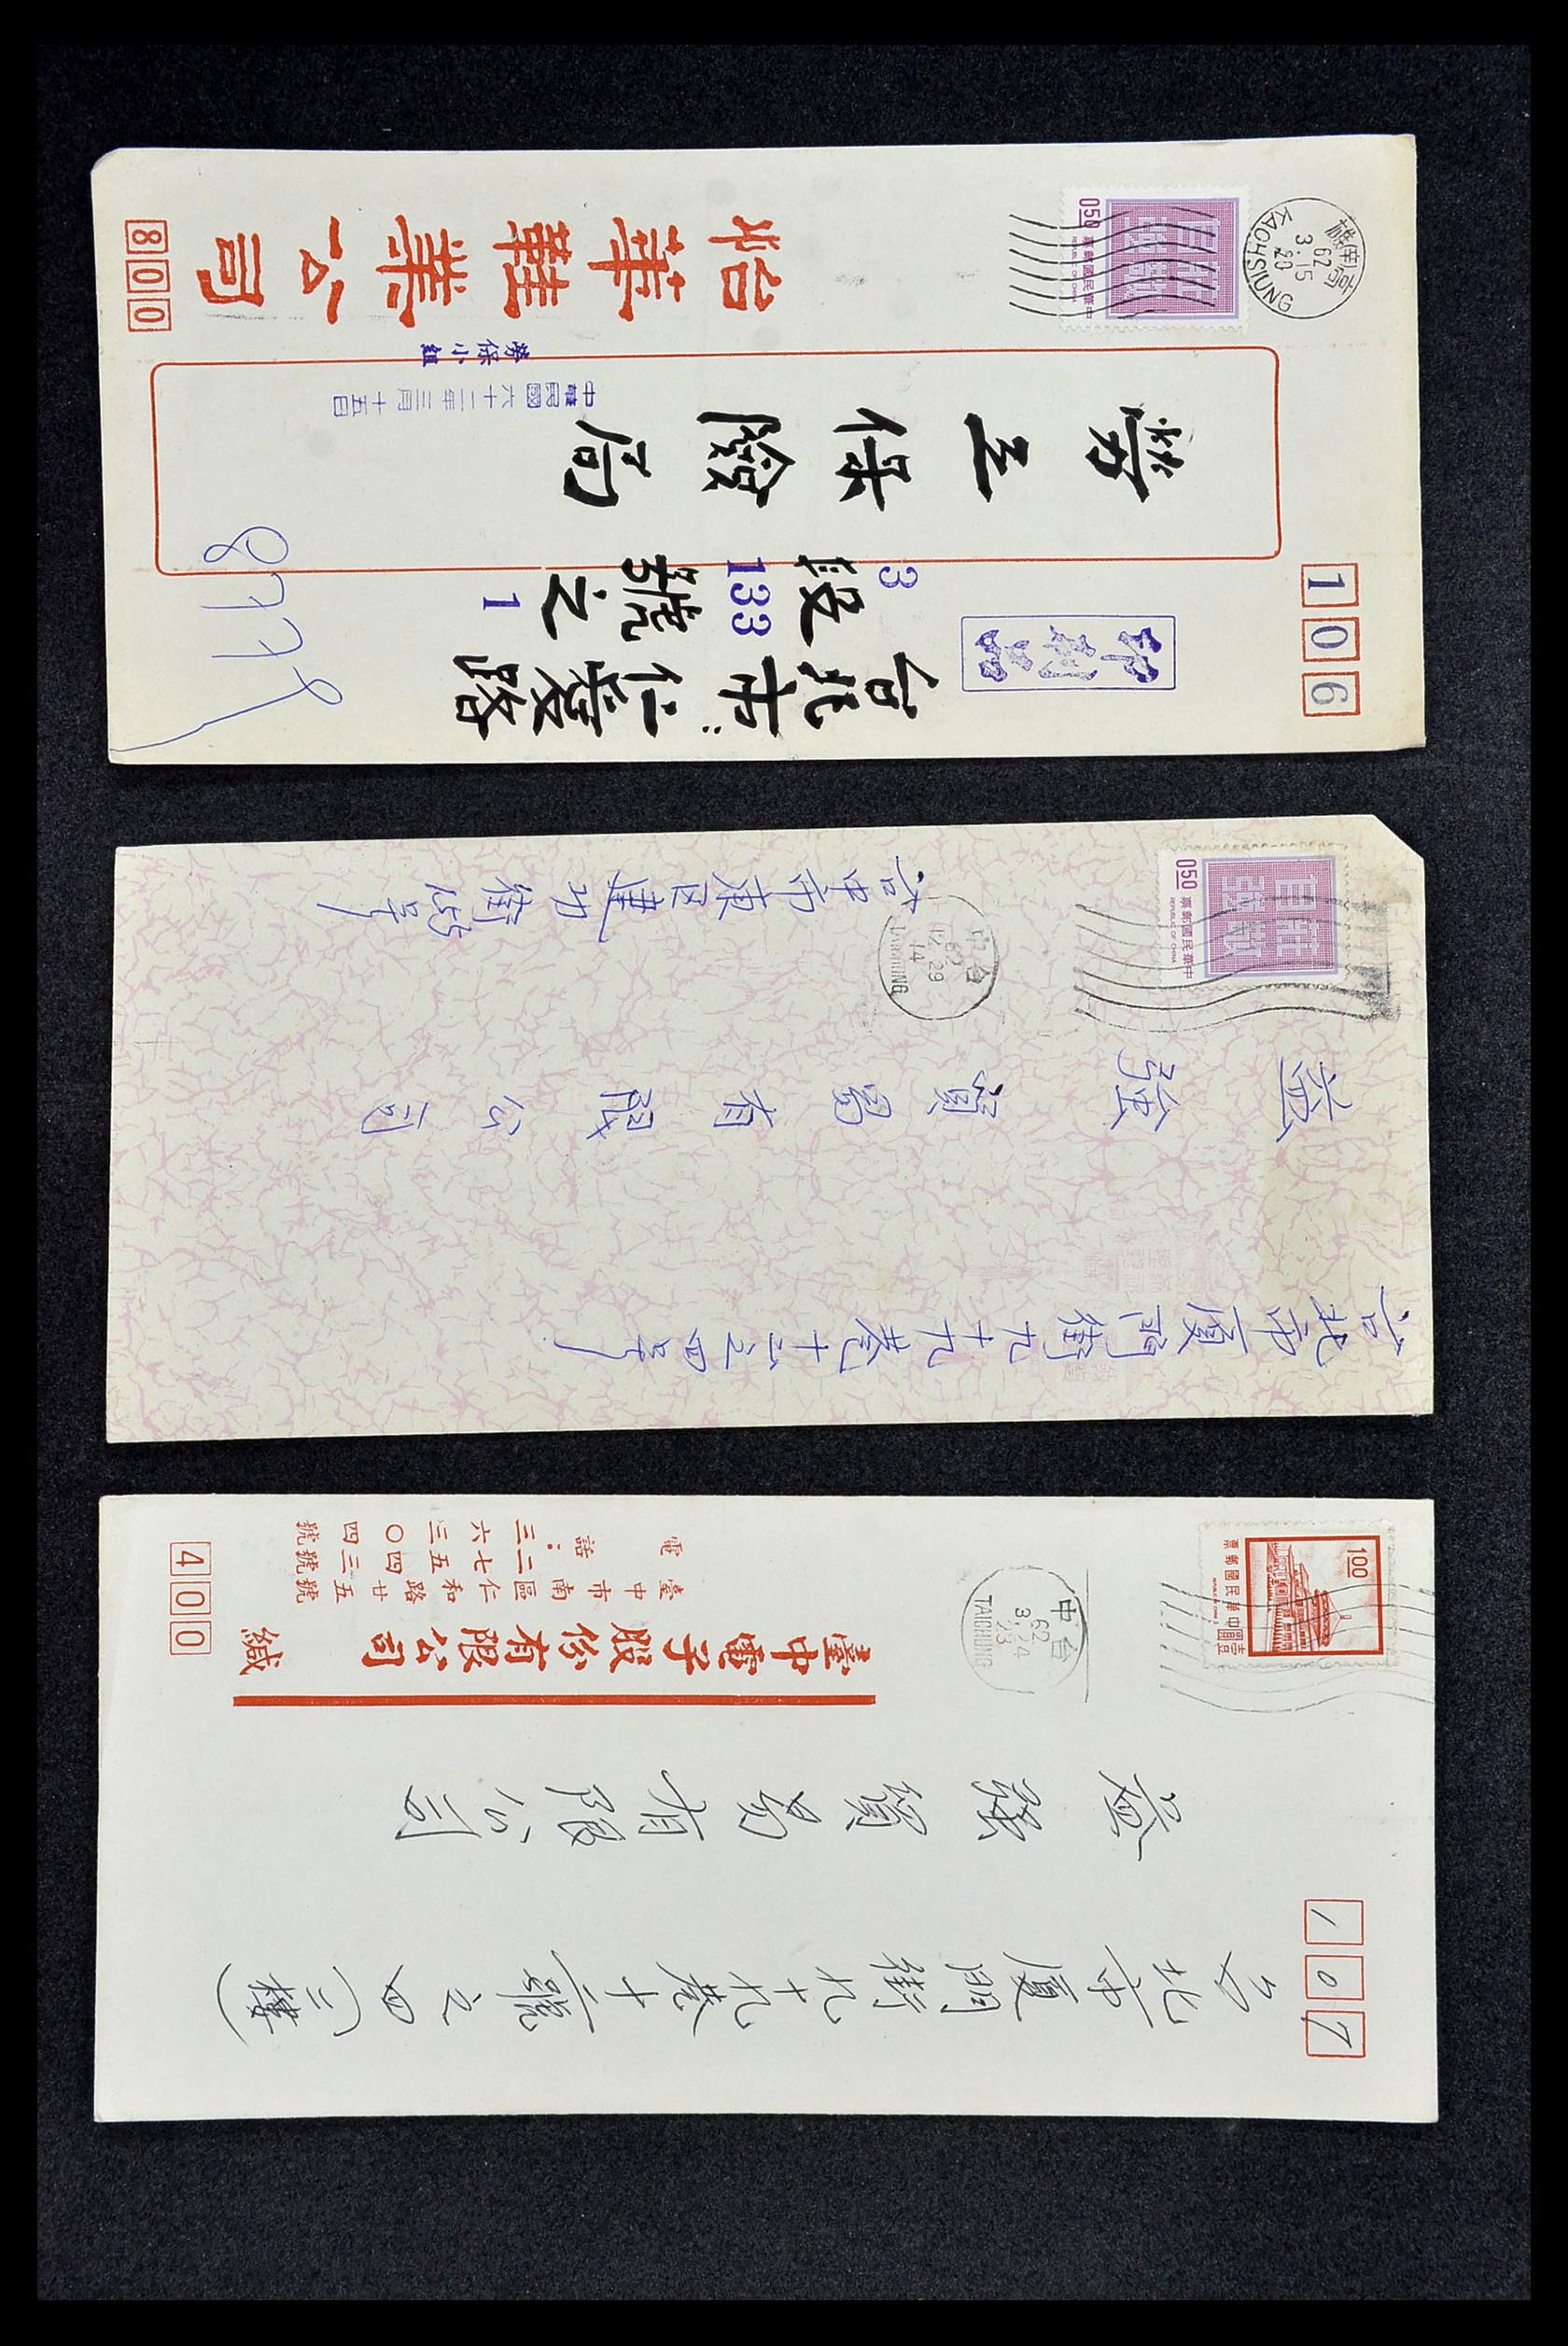 106
台北市:仁愛路
3段133號之1
印刷品
勞工保險局
中華民國六十二年三月十五日
勞保小組
怡華鞋業公司
800
0.50
莊敬自強
中華民國郵票
REPUBLIC OF CHINA
高雄
62
3.15
20
KAOHSIUNG
台北市廈門街九十九巷十二之四号
益強貿易有限公司
台中市東区建功街
0.50
莊敬自強
中華民國郵票
REPUBLIC OF CHINA
台中
62
12.29
14
TAICHUNG
107
台北市廈門街九十九巷十二號之四(二樓)
益強貿易有限公司
臺中電子股份有限公司 緘
臺中市南區仁和路廿五號
電話:三六三〇四號
二七五四三號
400
1.00
中華民國郵票
REPUBLIC OF CHINA
台中
62
3.24
23
TAICHUNG